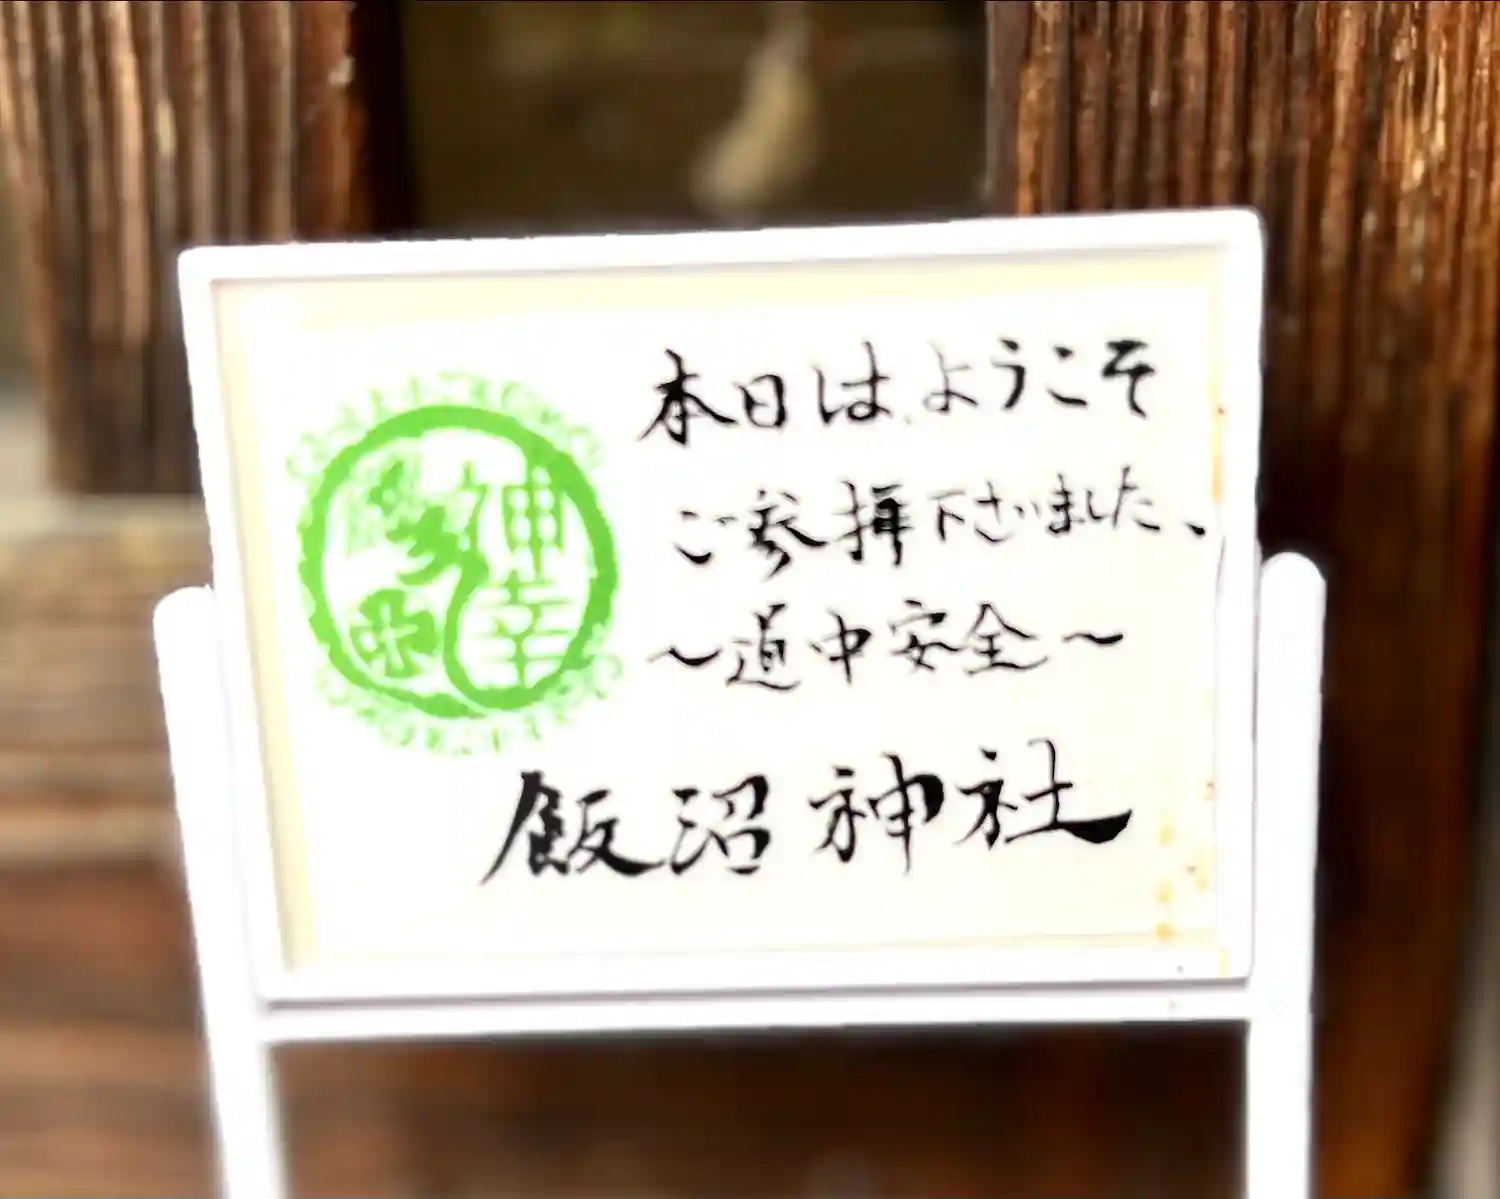 本日はようこそ
ご参拝下さいました、
〜道中安全〜
飯沼神社
神幸